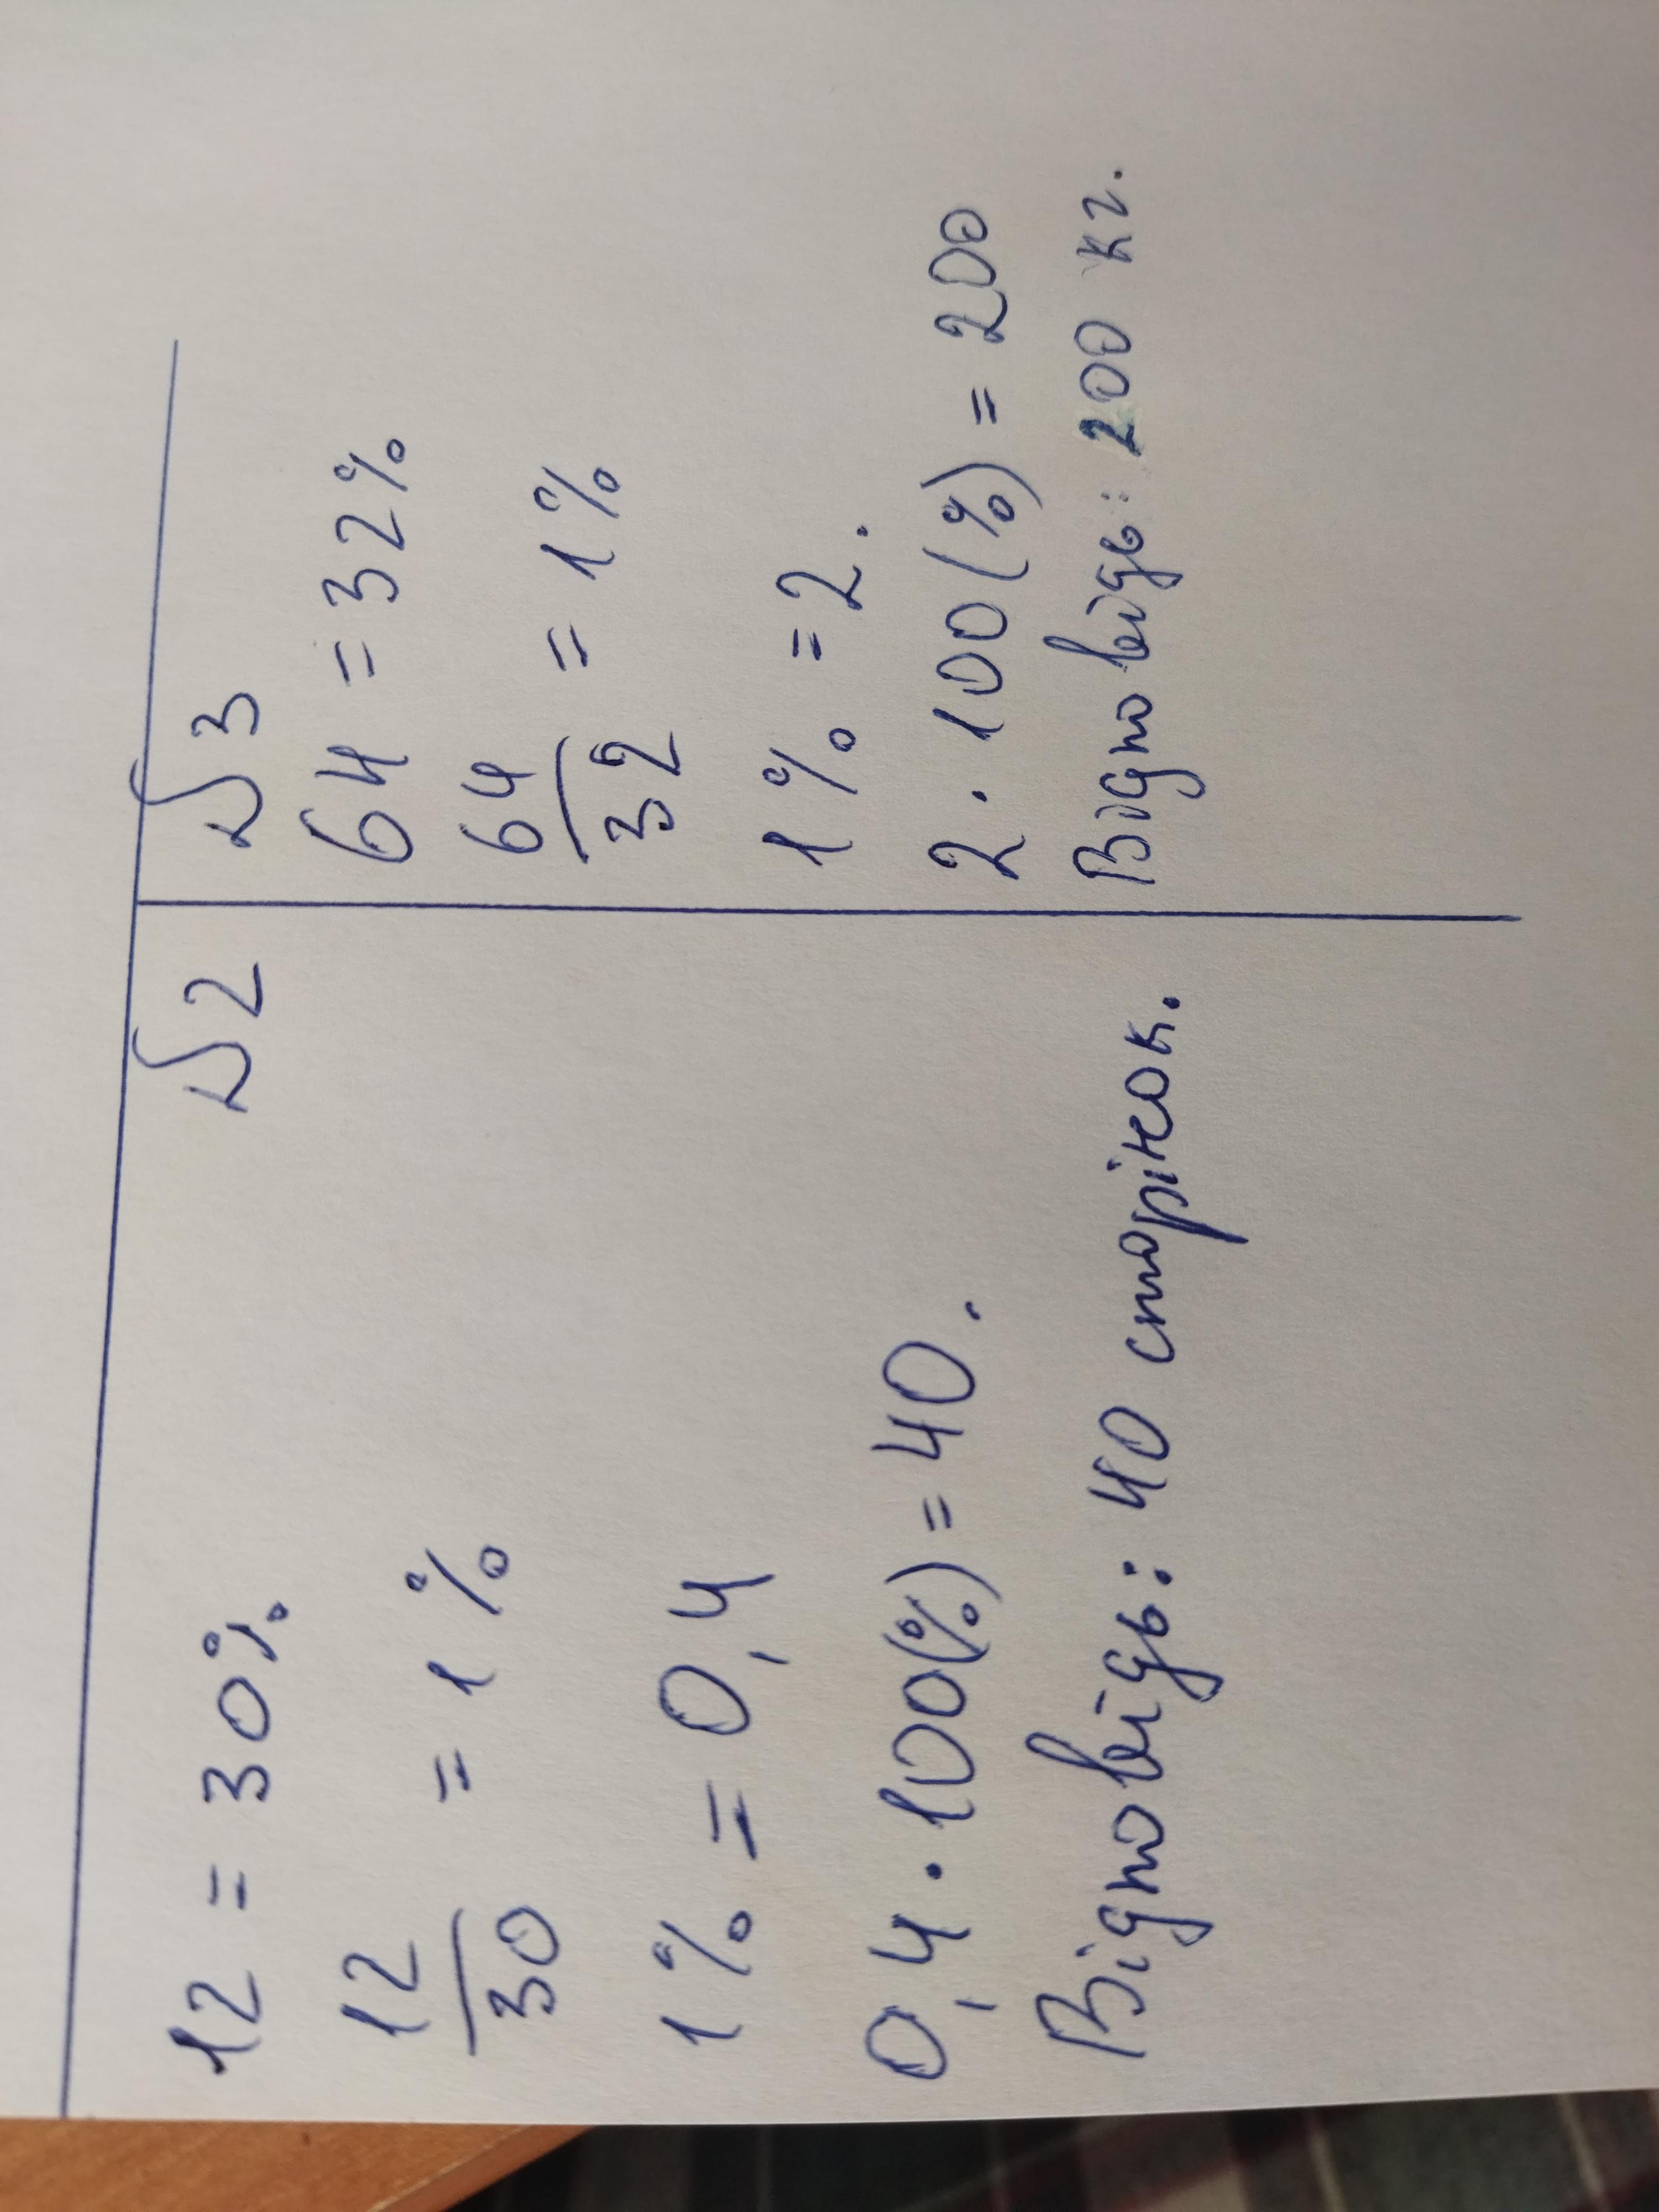 №2
12 = 30%
12/30 = 1%
1% = 0,4
0,4 · 100(%) = 40.
Відповідь: 40 сторінок.
№3
64 = 32%
64/32 = 1%
1% = 2.
2 · 100(%) = 200
Відповідь: 200 кг.